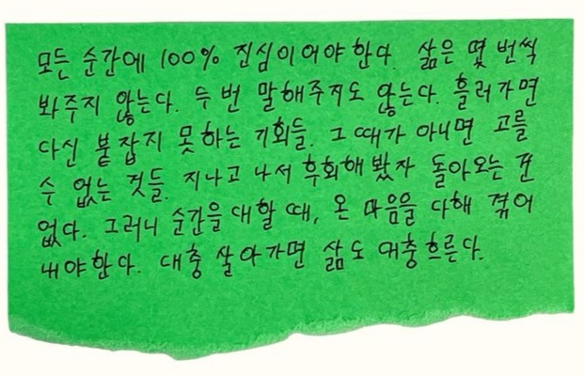 모든 순간에 100% 진심이어야 한다. 삶은 몇 번씩
봐주지 않는다. 두 번 말해주지도 않는다. 흘러가면
다신 붙잡지 못하는 기회들. 그때가 아니면 고를
수 없는 것들. 지나고 나서 후회해 봤자 돌아오는 건
없다. 그러니 순간을 대할 때, 온 마음을 다해 겪어
내야 한다. 대충 살아가면 삶도 대충 흐른다.